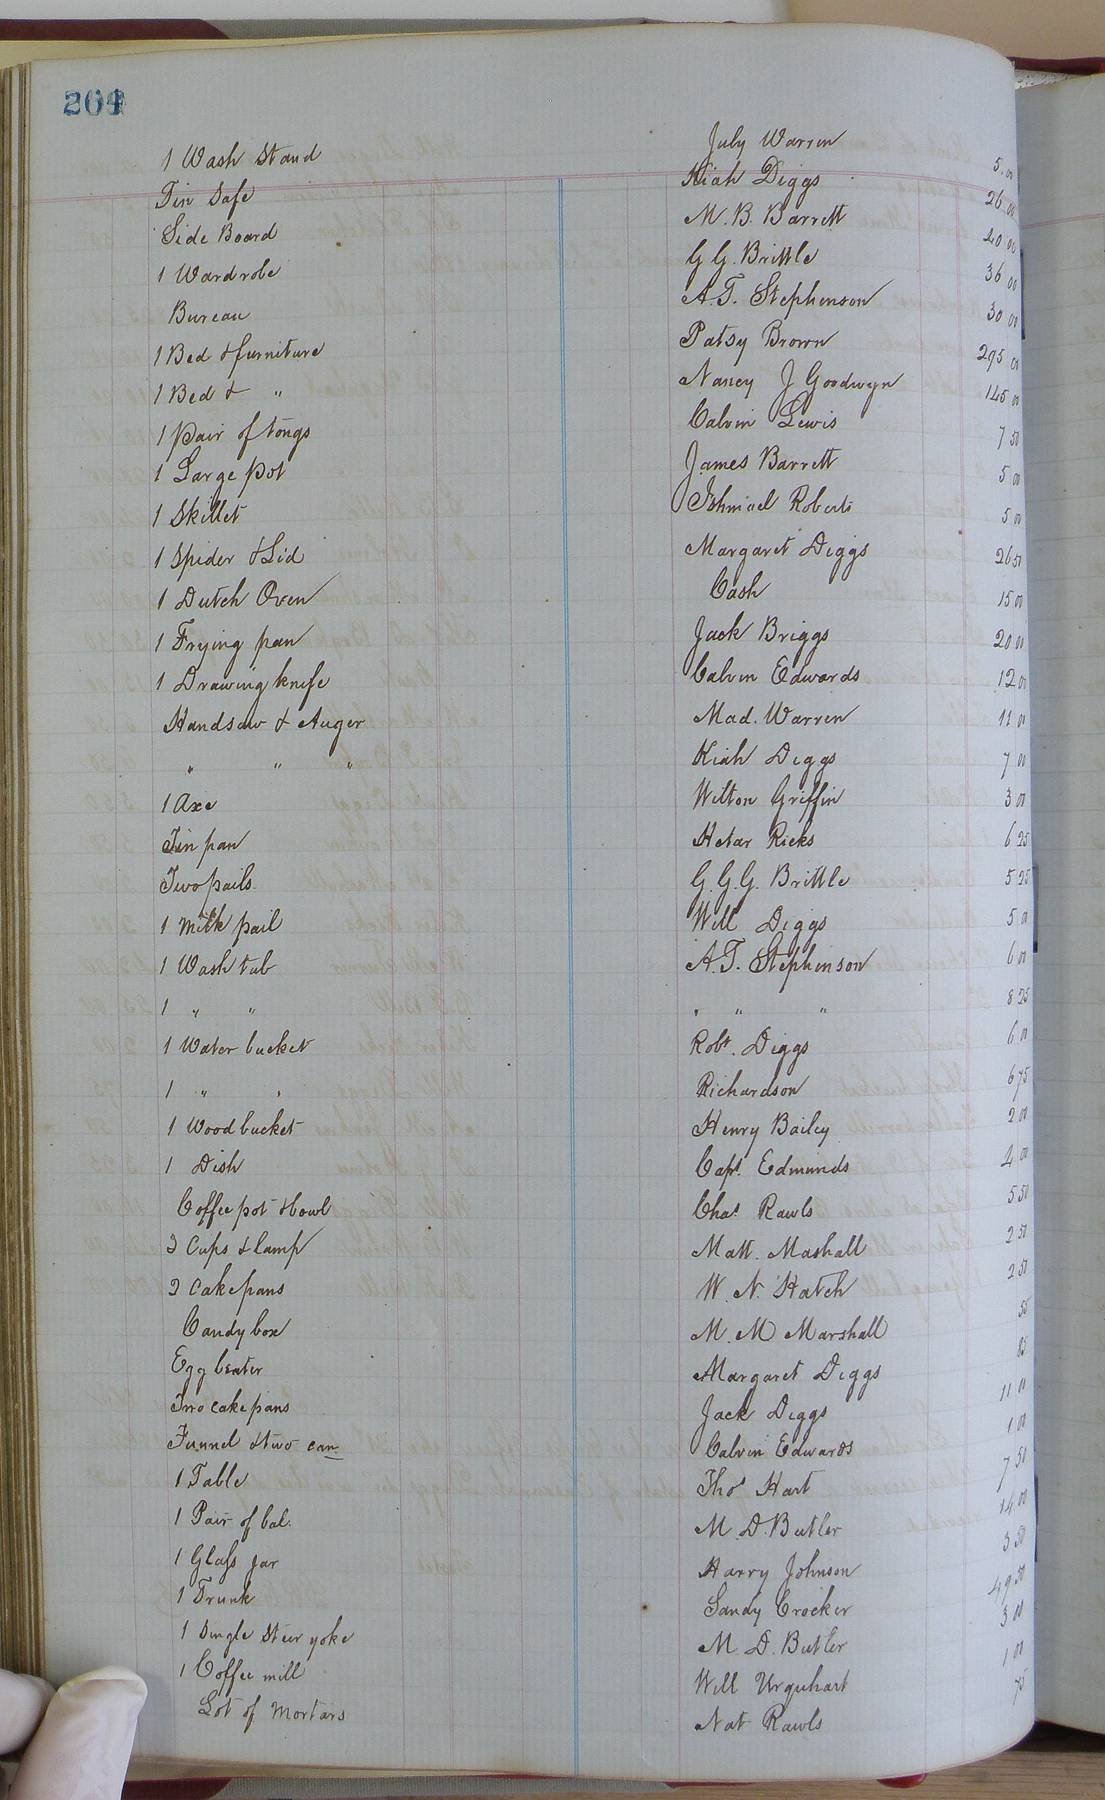 264
1 Wash Stand July Warren 5.00
Tin Safe Kiah Diggs 26 00
Side Board M. B. Barrett 40 00
1 Wardrobe G G. Brittle 36 00
Bureau A. T. Stephenson 30 00
1 Bed & furniture Patsy Brown 295 00
1 Bed & " Nancy J Goodwyn 145 00
1 pair of tongs Calvin Lewis 7 50
1 Large pot James Barrett 5 00
1 Skillet Ishmael Roberts 5 00
1 Spider & Lid Margaret Diggs 26 50
1 Dutch Oven Cash 15 00
1 Frying pan Jack Briggs 20 00
1 Drawing knife Calvin Edwards 12 00
Handsaw & Auger Mad. Warren 11 00
" " " Kiah Diggs 7 00
1 Axe Wilton Griffin 3 00
Tin pan Ricks 6 25
Two pails. G. G. G. Brittle 5 25
1 Milk pail Will Diggs 5 00
1 Wash tub A. T. Stephenson 6 00
1 " " " " " 8 25
1 Water bucket Robt. Diggs 6 00
1 " " Richardson 6 75
1 Wood bucket Henry Bailey 2 00
1 Dish Capt. Edmunds 4 00
Coffee pot & bowl Chas Rawls 5 50
3 Cups & lamp Matt. Mashall 2 50
2 Cake pans W. N. Hatch 2 50
Candy box M. M Marshall 55
Egg beater Margaret Diggs 85
Two cake pans Jack Diggs 11 00
Funnel & two can Calvin Edwards 1 00
1 Table Thos Hart 7 50
1 Pair of bal. M. D. Butler 14 00
1 Glass jar Harry Johnson 3 50
1 Trunk Sandy Crocker 49 50
1 Single Steer yoke M. D. Butler 3 00
1 Coffee mill Will Urquhart 1 00
Lot of Mortars Nat Rawls 75